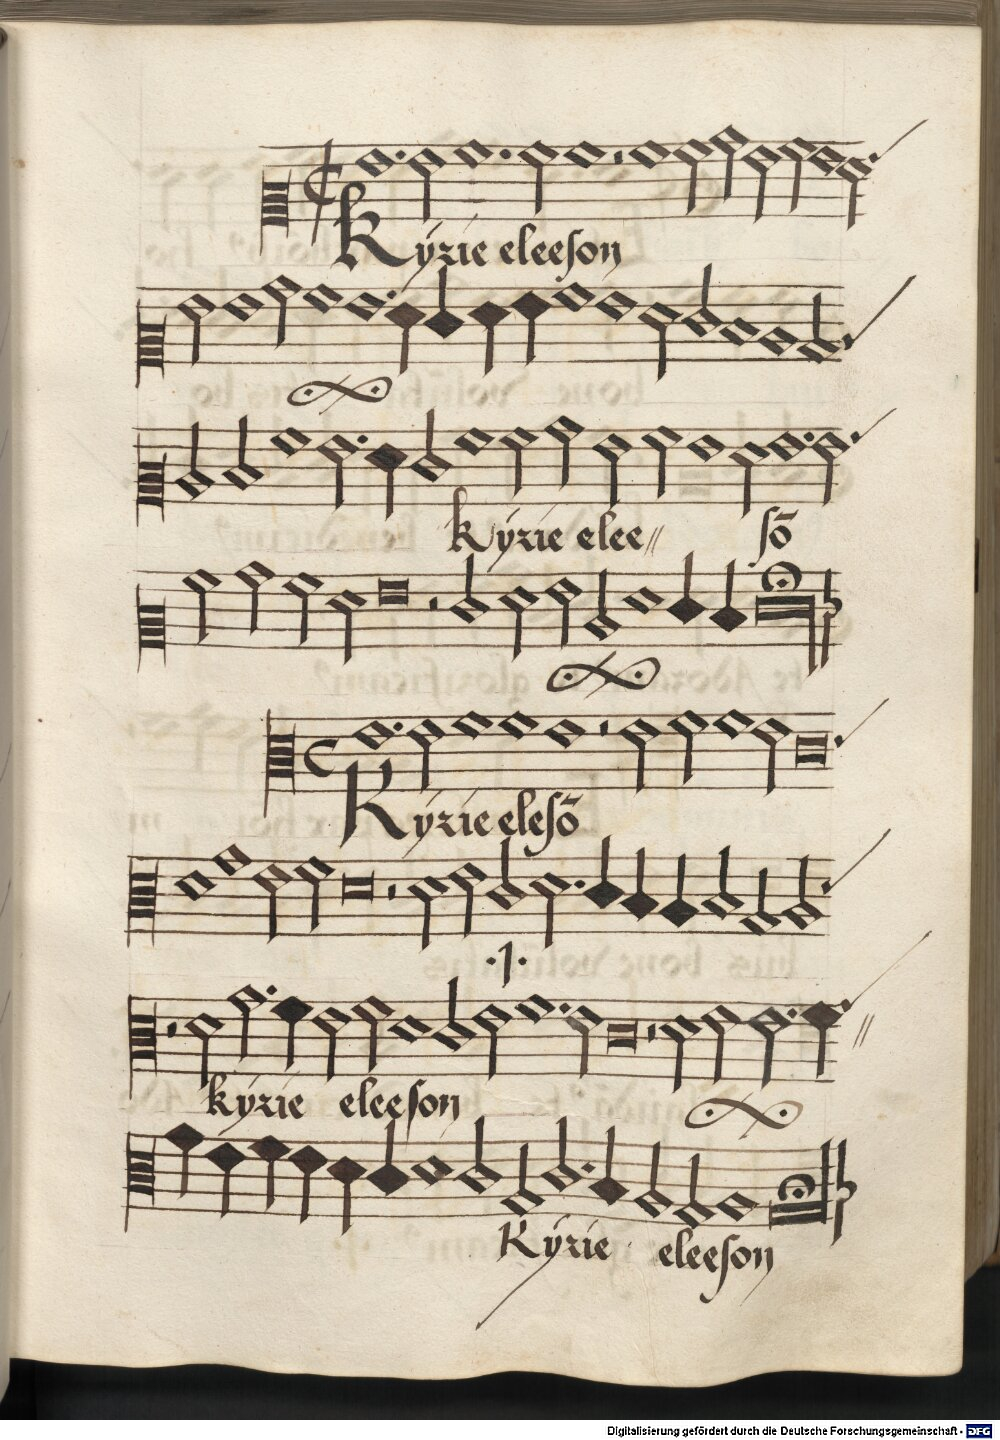 Kyrie eleeson
kyrie elee// sō
Kyrie elesō
·1·
kyrie eleeson
Kyrie eleeson
Digitalisierung gefördert durch die Deutsche Forschungsgemeinschaft - DFG